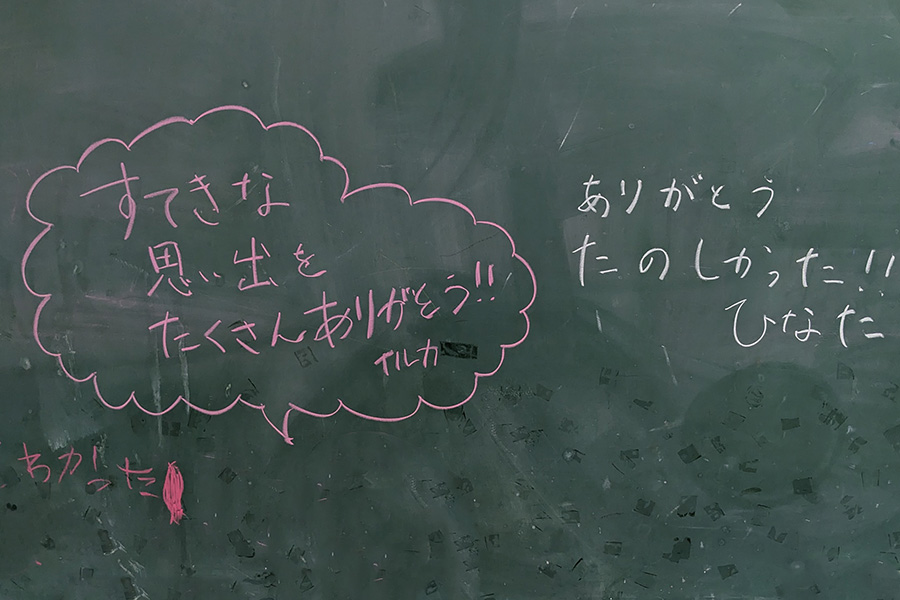 すてきな
思い出を
たくさんありがとう!!
イルカ
ありがとう
たのしかった!!
ひなた
わかった